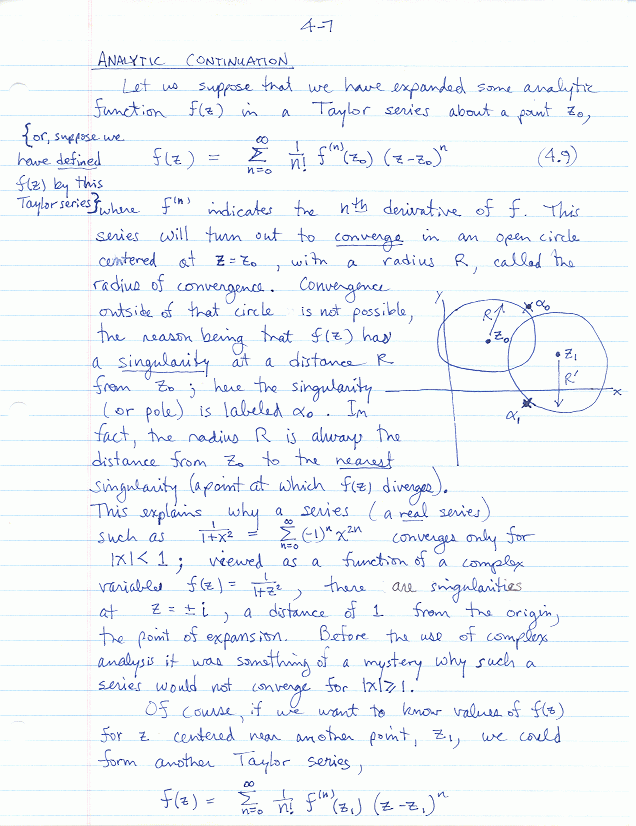 4-7
ANALYTIC CONTINUATION
Let us suppose that we have expanded some analytic
function f(z) in a Taylor series about a point z₀,
{or, suppose we
have defined
f(z) by this
Taylor series}
f(z) = ∑_{n=0}^{∞} 1/n! f⁽ⁿ⁾(z₀) (z-z₀)ⁿ (4.9)
where f⁽ⁿ⁾ indicates the nth derivative of f. This
series will turn out to converge in an open circle
centered at z=z₀, with a radius R, called the
radius of convergence. Convergence
outside of that circle is not possible,
the reason being that f(z) has
a singularity at a distance R
from z₀; here the singularity
(or pole) is labeled α₀. In
fact, the radius R is always the
distance from z₀ to the nearest
singularity (a point at which f(z) diverges).
y
R
α₀
z₀
z₁
R'
x
α₁
This explains why a series (a real series)
such as 1/(1+x²) = ∑_{n=0}^{∞} (-1)ⁿ x²ⁿ converges only for
|x|<1; viewed as a function of a complex
variable f(z) = 1/(1+z²), there are singularities
at z = ±i, a distance of 1 from the origin,
the point of expansion. Before the use of complex
analysis it was something of a mystery why such a
series would not converge for |x|≥1.
Of course, if we want to know values of f(z)
for z centered near another point, z₁, we could
form another Taylor series,
f(z) = ∑_{n=0}^{∞} 1/n! f⁽ⁿ⁾(z₁) (z-z₁)ⁿ